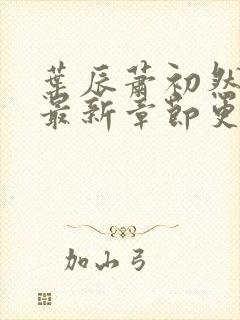 葉辰蕭初然
最新章節更
加山弓